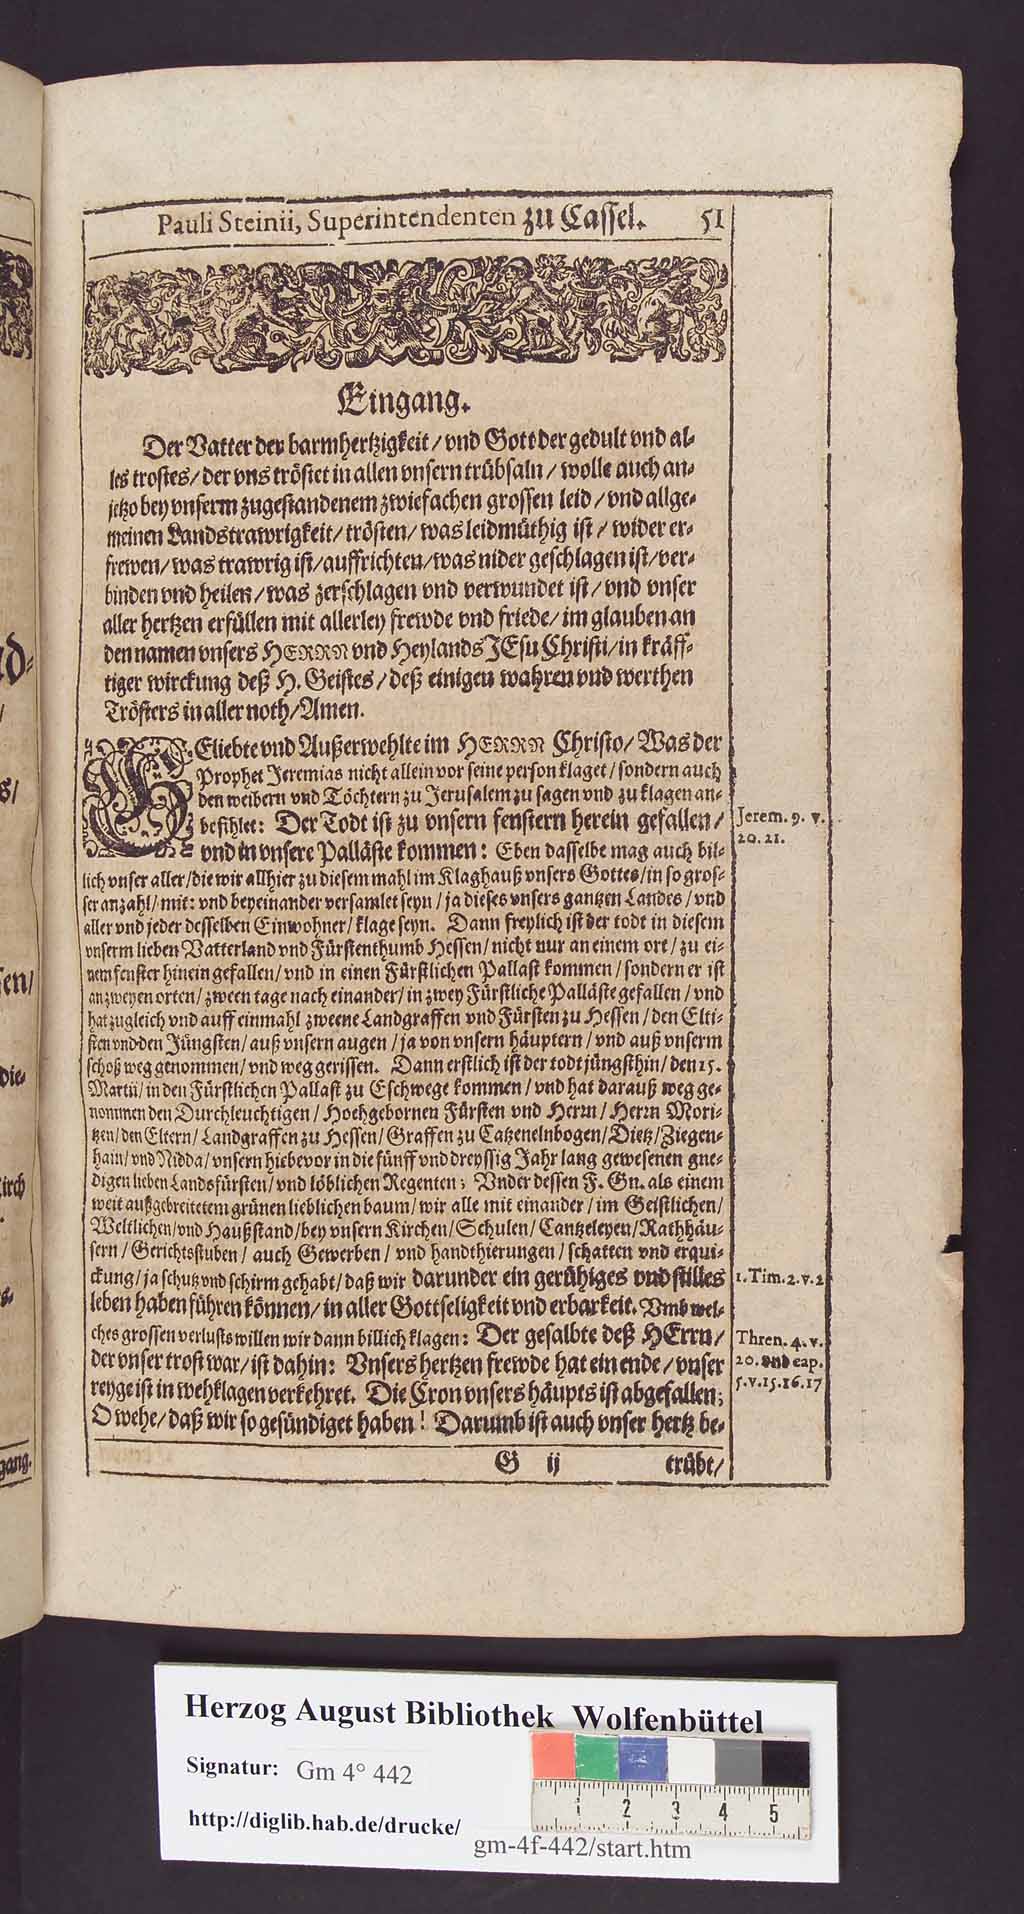 Pauli Steinii, Superintendenten zu Cassel. 51
Eingang.
Der Vatter der barmhertzigkeit / vnd Gott der gedult vnd al-
les trostes / der vns tröstet in allen vnsern trübsaln / wolle auch an-
jetzo bey vnserm zugestandenem zwiefachen grossen leid / vnd allge-
meinen Landstrawrigkeit / trösten / was leidmüthig ist / wider er-
frewen / was trawrig ist / auffrichten / was nider geschlagen ist / ver-
binden vnd heilen / was zerschlagen vnd verwundet ist / vnd vnser
aller hertzen erfüllen mit allerley frewde vnd friede / im glauben an
den namen vnsers HERRN vnd Heylands JEsu Christi / in kräff-
tiger wirckung deß H. Geistes / deß einigen wahren vnd werthen
Trösters in aller noth / Amen.
GEliebte vnd Außerwehlte im HERRN Christo / Was der
Prophet Jeremias nicht allein vor seine person klaget / sondern auch
den weibern vnd Töchtern zu Jerusalem zu sagen vnd zu klagen an-
befihlet: Der Todt ist zu vnsern fenstern herein gefallen /
Jerem. 9. v.
20. 21.
vnd in vnsere Palläste kommen: Eben dasselbe mag auch bil-
lich vnser aller / die wir allhier zu diesem mahl im Klaghauß vnsers Gottes / in so gros-
ser anzahl / mit: vnd beyeinander versamlet seyn / ja dieses vnsers gantzen Landes / vnd
aller vnd jeder desselben Einwohner / klage seyn. Dann freylich ist der todt in diesem
vnserm lieben Vatterland vnd Fürstenthumb Hessen / nicht nur an einem ort / zu ei-
nem fenster hinein gefallen / vnd in einen Fürstlichen Pallast kommen / sondern er ist
an zweyen orten / zween tage nach einander / in zwey Fürstliche Palläste gefallen / vnd
hat zugleich vnd auff einmahl zweene Landgraffen vnd Fürsten zu Hessen / den Elti-
sten vnd den Jüngsten / auß vnsern augen / ja von vnsern häuptern / vnd auß vnserm
schoß weg genommen / vnd weg gerissen. Dann erstlich ist der todt jüngsthin / den 15.
Martii / in den Fürstlichen Pallast zu Eschwege kommen / vnd hat darauß weg ge-
nommen den Durchleuchtigen / Hochgebornen Fürsten vnd Herrn / Herrn Mori-
tzen / den Eltern / Landgraffen zu Hessen / Graffen zu Catzenelnbogen / Dietz / Ziegen-
hain / vnd Nidda / vnsern hiebevor in die fünff vnd dreyssig Jahr lang gewesenen gne-
digen lieben Landsfürsten / vnd löblichen Regenten; Vnder dessen F. Gn. als einem
weit außgebreitetem grünen lieblichen baum / wir alle mit einander / im Geistlichen /
Weltlichen / vnd Haußstand / bey vnsern Kirchen / Schulen / Cantzeleyen / Rathhäu-
sern / Gerichtsstuben / auch Gewerben / vnd handthierungen / schatten vnd erqui-
ckung / ja schutz vnd schirm gehabt / daß wir darunder ein gerühiges vnd stilles
1. Tim. 2. v. 2
leben haben führen können / in aller Gottseligkeit vnd erbarkeit. Vmb wel-
ches grossen verlusts willen wir dann billich klagen: Der gesalbte deß HErrn /
Thren. 4. v.
20. vnd cap.
5. v. 15. 16. 17
der vnser trost war / ist dahin: Vnsers hertzen frewde hat ein ende / vnser
reyge ist in wehklagen verkehret. Die Cron vnsers häupts ist abgefallen;
O wehe / daß wir so gesündiget haben! Darumb ist auch vnser hertz be-
G ij trübt /
Herzog August Bibliothek Wolfenbüttel
Signatur: Gm 4° 442
http://diglib.hab.de/drucke/
gm-4f-442/start.htm
1 2 3 4 5